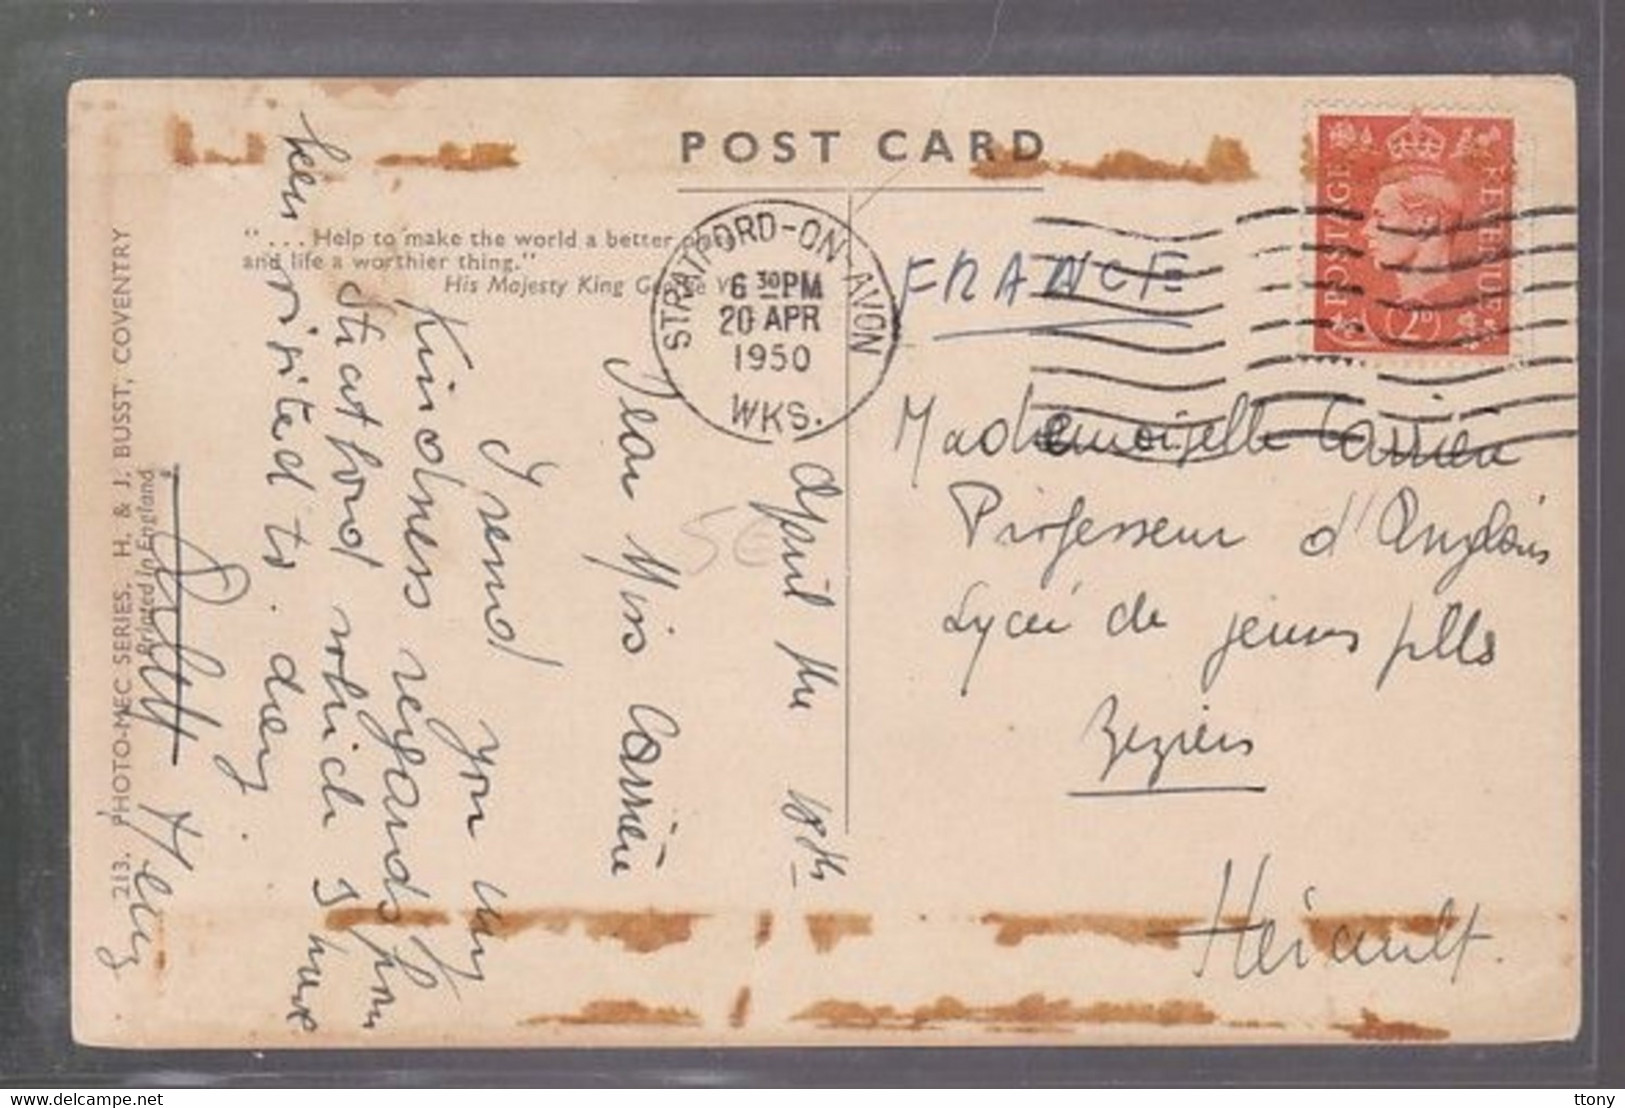 POST CARD
"...Help to make the world a better place
and life a worthier thing."
His Majesty King George V
213. PHOTO-MEC SERIES. H. & J. BUSST, COVENTRY
Printed in England
STRATFORD-ON-AVON
6 30 PM
20 APR
1950
WKS.
POSTAGE
REVENUE
2D
FRANCE
Mademoiselle Carrière
Professeur d'Anglais
Lycée de jeunes filles
Beziers
Hérault.
April the 18th
Dear Miss Carrière
I send you my
Kindness regards from
Stratford which I have
been visited to.day
ttony